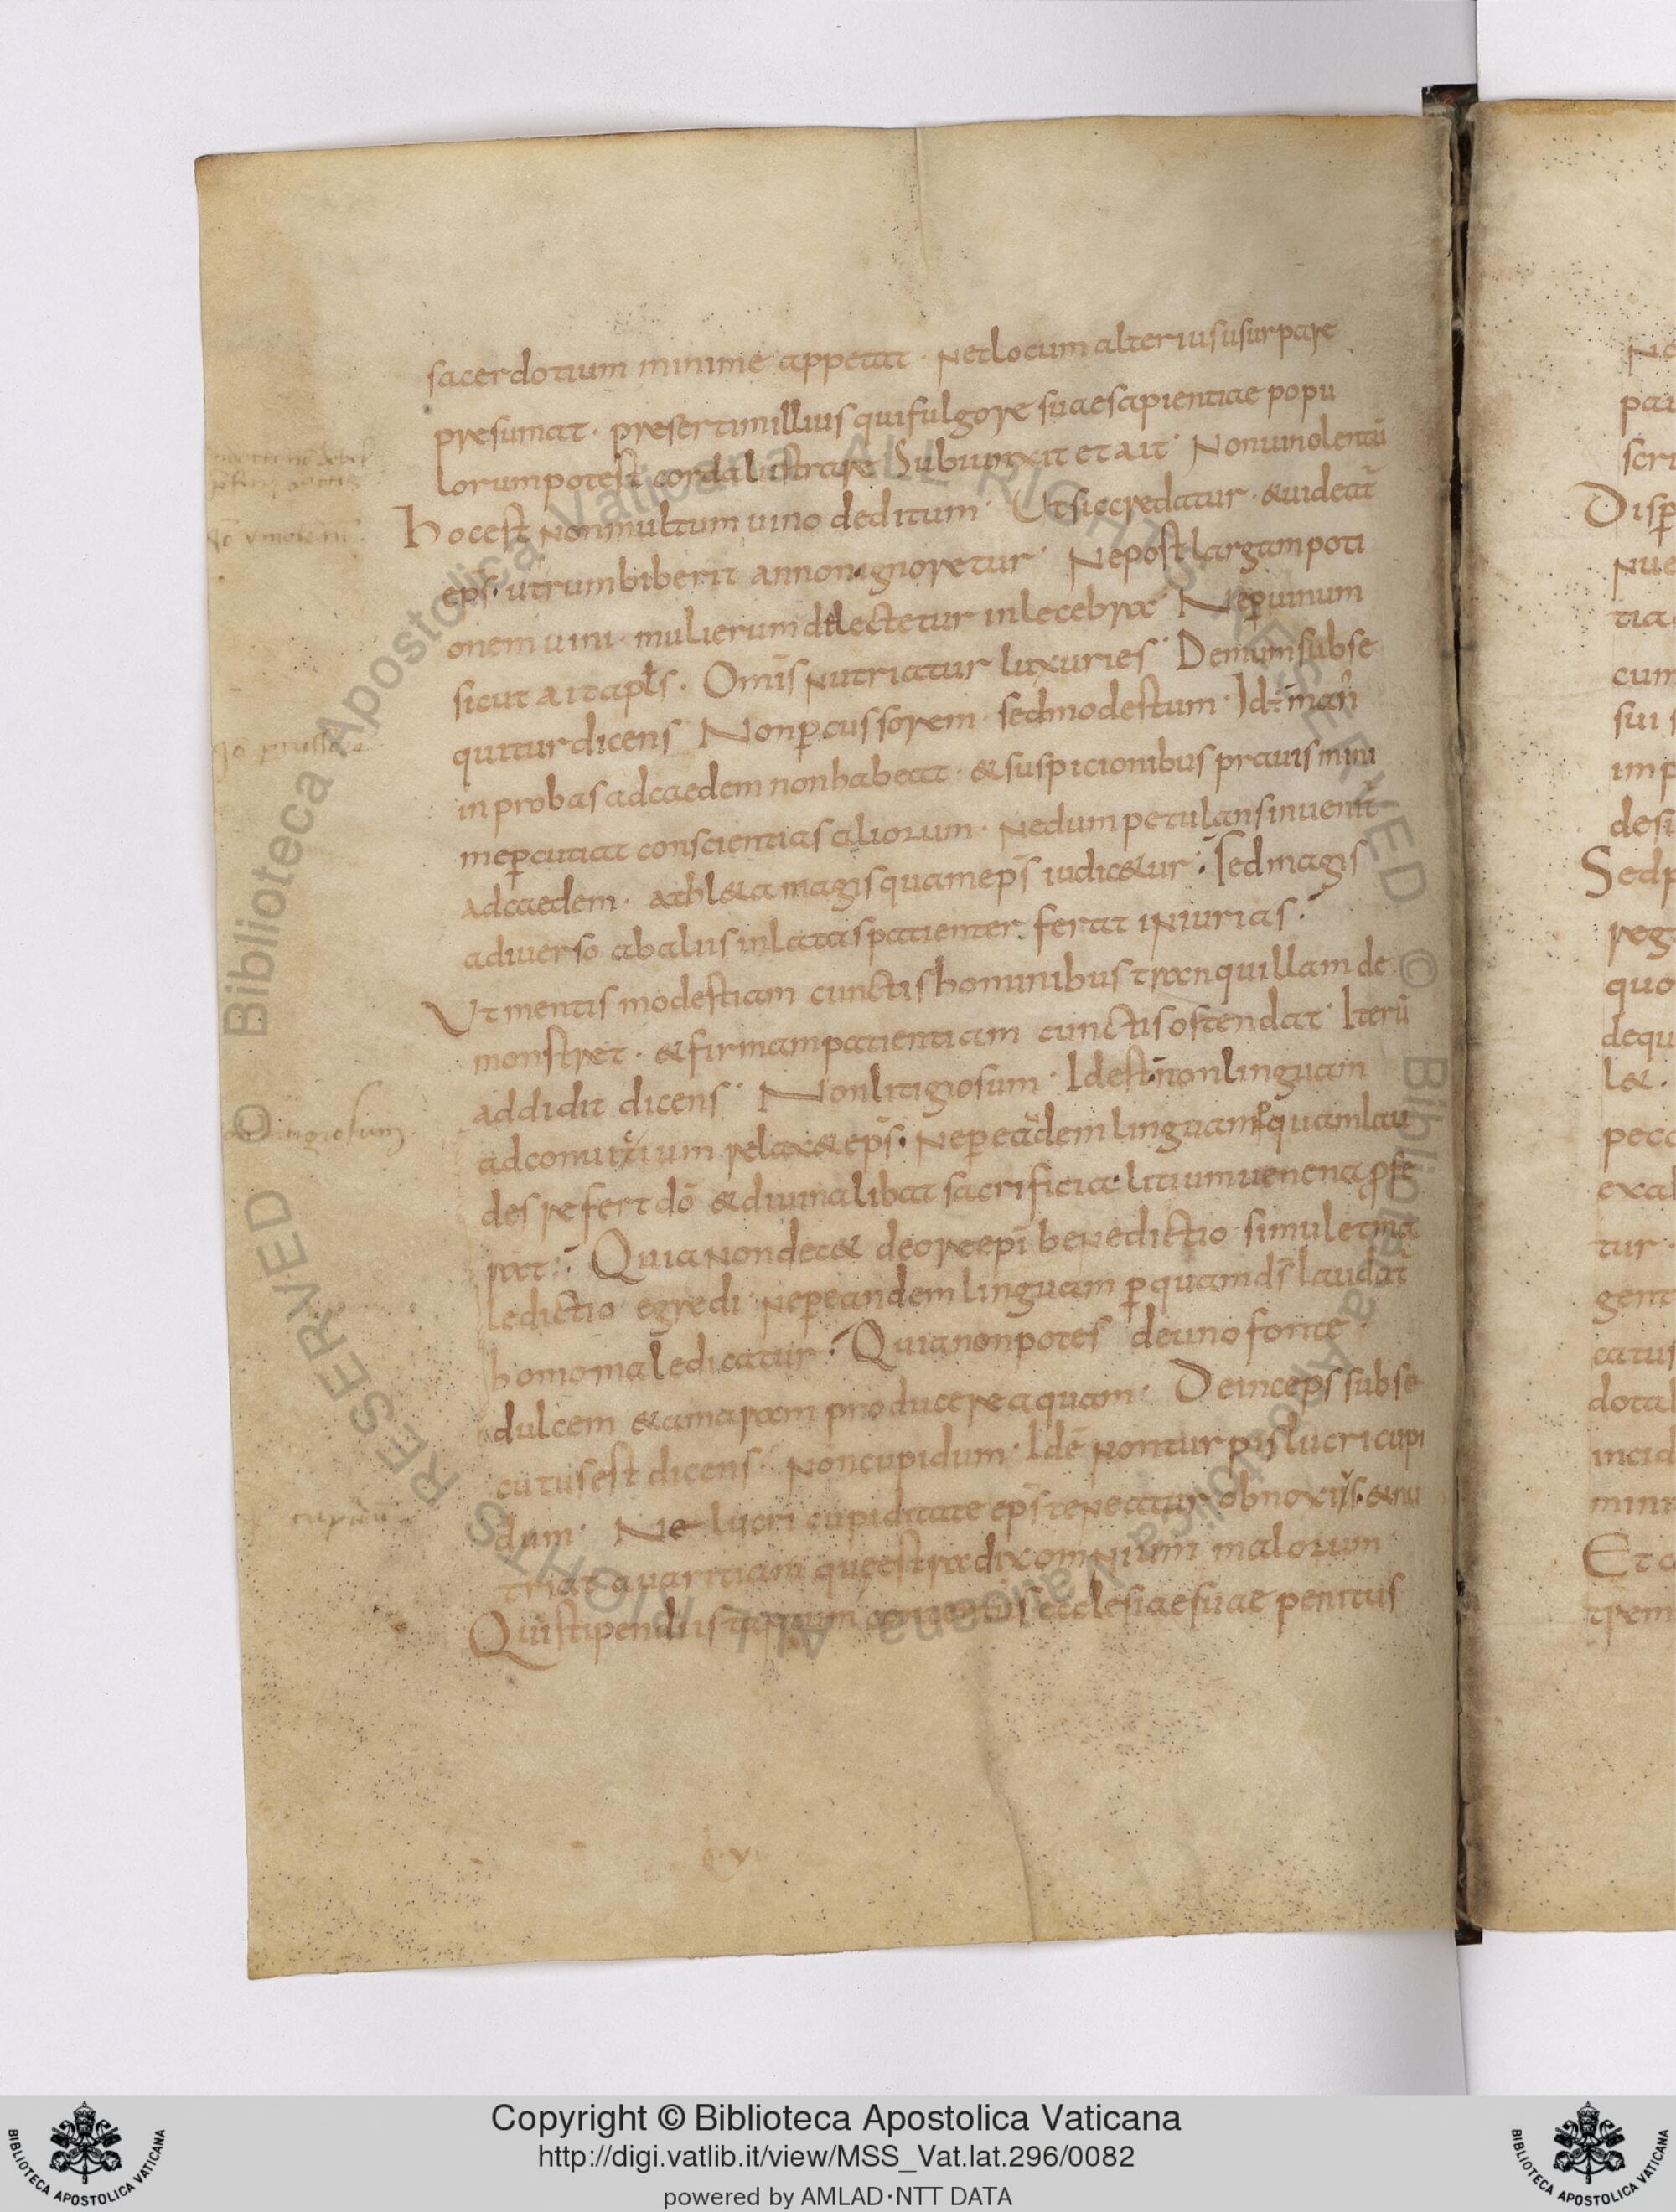 sacerdotium minime appetat · Nec locum alterius usurpare
presumat · presertim illius qui fulgore suae sapientiae popu
lorum potest corda lustrare Subiunxit et ait · Non uinolentū
Hoc est non multum uino deditum · Ut sic credatur · & uideat̄
ep̄s · utrum biberit an non ignoretur · Ne post largam poti
onem uini · mulierum delectetur inlecebra · Ne per uinum
sicut ait apl̄s · Om̄is nutriatur luxuries · Demum subse
quitur dicens Non p̄cussorem · sed modestum · Id ÷ man᷒
inprobas ad caedem non habeat · & suspicionibus prauis mini
me p̄cutiat conscientias aliorum · Nedum petulans inuenit̄
ad caedem · athl&a magis quam ep̄s iudic&ur : Sed magis
aduerso ab aliis inlatas patienter ferat iniurias :
Ut mentis modestiam cunctis hominibus tranquillam de
monstret · & firmam patientiam cunctis ostendat · Iterū
addidit dicens · Non litigiosum · Id est non linguam
ad conuitium relax& ep̄s · Ne per eandem linguam quam lau
des refert dō & diuina libat sacrificia litium uenena p̄fe
rat : Quia non dec& de ore ep̄i benedictio simul et ma
ledictio egredi · Ne p̄ eandem linguam p̄ quam d̄s laudat̄
homo maledicatur : Quia non potes de uno fonte
dulcem & amaram producere aquam · Deinceps subse
cutus est dicens · Non cupidum · Id ē non turpis lucri cupi
dum · Ne lucri cupiditate ep̄s teneatur obnoxius · & nu
triat auaritiam que est radix omnium malorum
Qui stipendiis ecclesiae suae penitus
litigiosum
cupidū
Ne
pat
scri
Disp
Nue
tia
cum
sui s
imp
desi
Sedp
reg
quo
dequ
l& ·
pecc
exa
tur ·
gent
catus
dotal
incid
mini
Et c
trem
© Biblioteca Apostolica Vaticana ALL RIGHTS RESERVED © Biblioteca Apostolica Vaticana ALL RIGHTS RESERVED
Copyright © Biblioteca Apostolica Vaticana
http://digi.vatlib.it/view/MSS_Vat.lat.296/0082
powered by AMLAD·NTT DATA
BIBLIOTECA APOSTOLICA VATICANA
BIBLIOTECA APOSTOLICA VATICANA